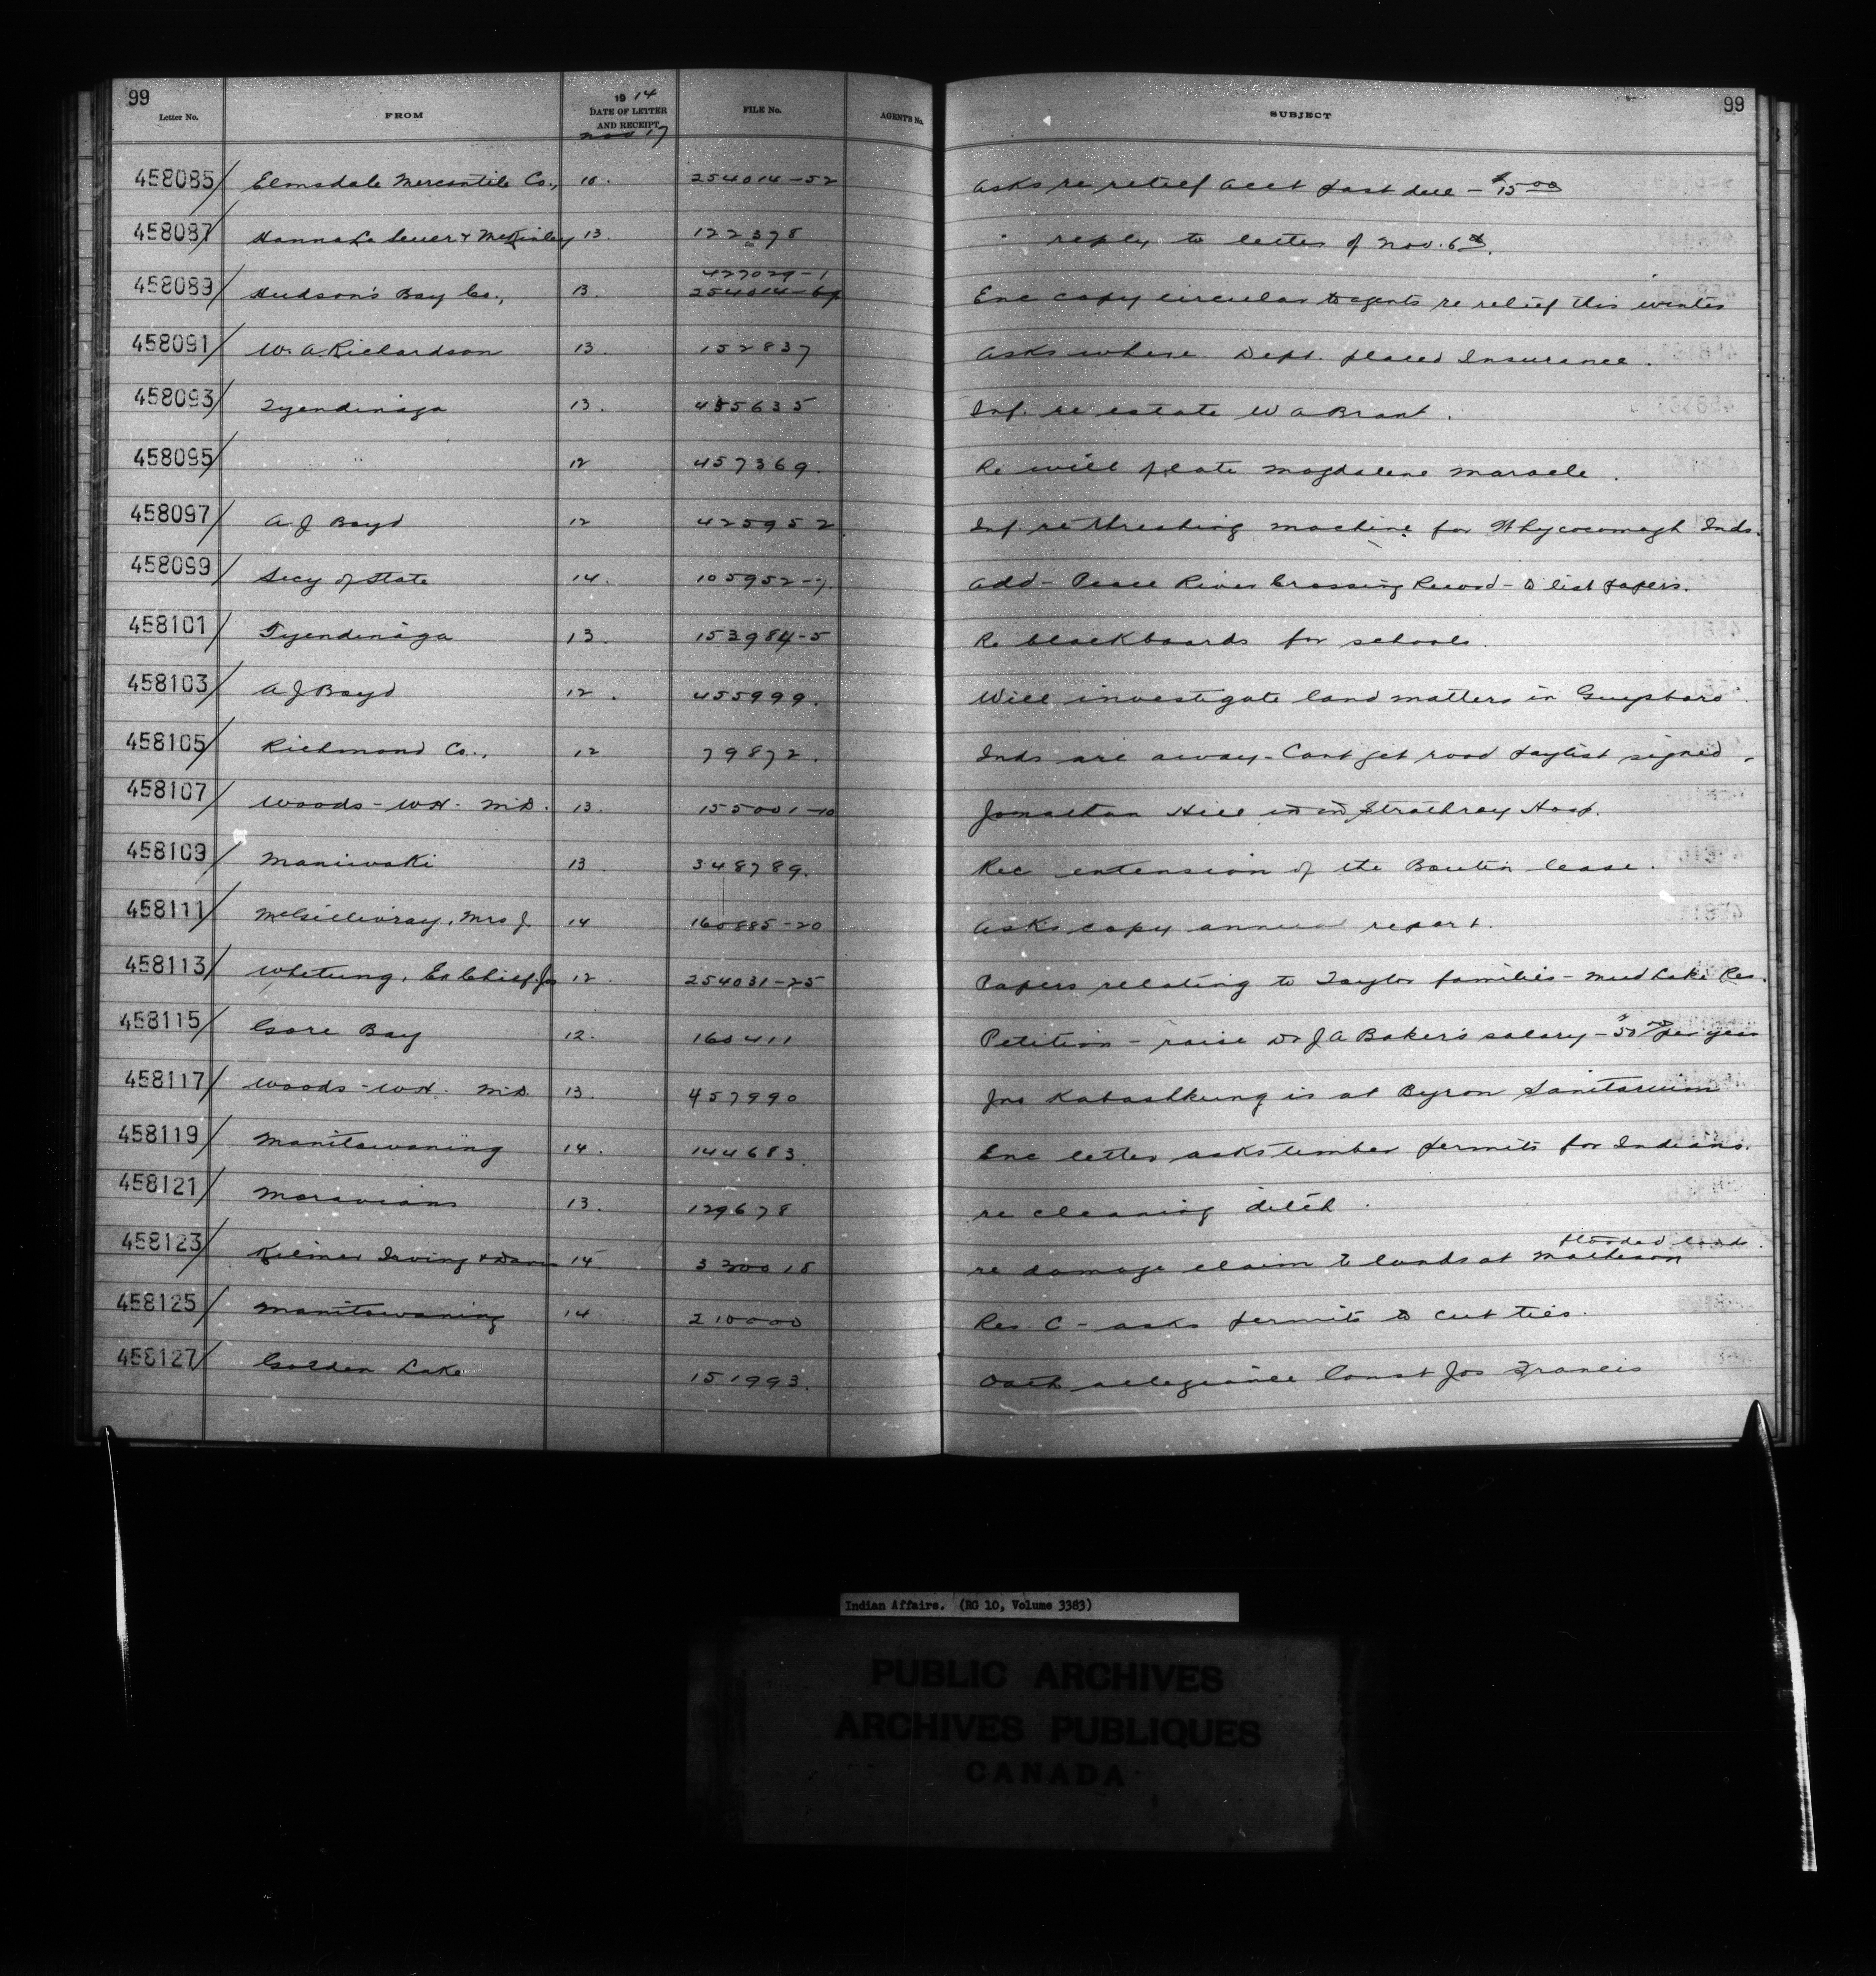 99
Letter No. FROM 1914 DATE OF LETTER AND RECEIPT Nov 17 FILE No. AGENT'S No. SUBJECT 99
458085 Elmsdale Mercantile Co., 10. 254014-52 Asks re relief acct past due - $15.00
458087 Hanna Le Sueur & McKinley 13. 122378 " reply to letter of Nov. 6th.
458089 Hudson's Bay Co., 13. 427029-1 Enc copy circular to agents re relief this winter
458091 W. A. Richardson 13. 152837 Asks where Dept. placed Insurance.
458093 Tyendinaga 13. 455635 Inf. re estate W A Brant.
458095 " 12 457369. Re will late Magdalene Maracle.
458097 A. J Boyd 12 425952 Inf. re threshing machine for Whycocomagh Inds.
458099 Secy of State 14. 105952-7. Add - Peace River Crossing Record - to list papers.
458101 Tyendinaga 13. 153984-5 Re blackboards for schools.
458103 A J Boyd 12. 455999. Will investigate land matters in Guysboro.
458105 Richmond Co., 12 79872. Inds are away - Cant get road paylist signed,
458107 Woods - W H. M.D. 13. 155001-10 Jonathan Hill in Strathroy Hosp.
458109 Maniwaki 13 348789. Rec extension of the Boutin lease.
458111 McGillivray, Mrs J. 14 160885-20 Asks copy annual report.
458113 Whetung, Ex Chief Jos 12. 254031-25 Papers relating to Taylor families - Mud Lake Res.
458115 Gore Bay 12. 160411 Petition - raise Dr J A Baker's salary - $50.00 per year
458117 Woods - W H. M.D. 13. 457990 Jno Kabashkung is at Byron Sanitarium
458119 Manitowaning 14. 144683. Enc letter asks timber permits for Indians.
458121 Moravians 13. 129678 re cleaning ditch.
flooded lands.
458123 Kilmer Irving & Davis 14 320018 re damage claim to lands at Matheson
458125 Manitowaning 14 210000 Res. C - asks permits to cut ties.
458127 Golden Lake 151993. Oath allegiance Const Jos Francis
Indian Affairs. (RG 10, Volume 3383)
PUBLIC ARCHIVES
ARCHIVES PUBLIQUES
CANADA